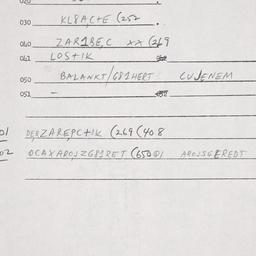 020
030 KL8A,C+E (252 .
040 ZAR1BE,C xx (269
041 LOS+IK
050 BALANKT/G81HERT CUJENEM
051 -
01 DERZAREPC+IK (269 (408
02 OCAXAROJZG81RET (650@1 AROJSGEREDT